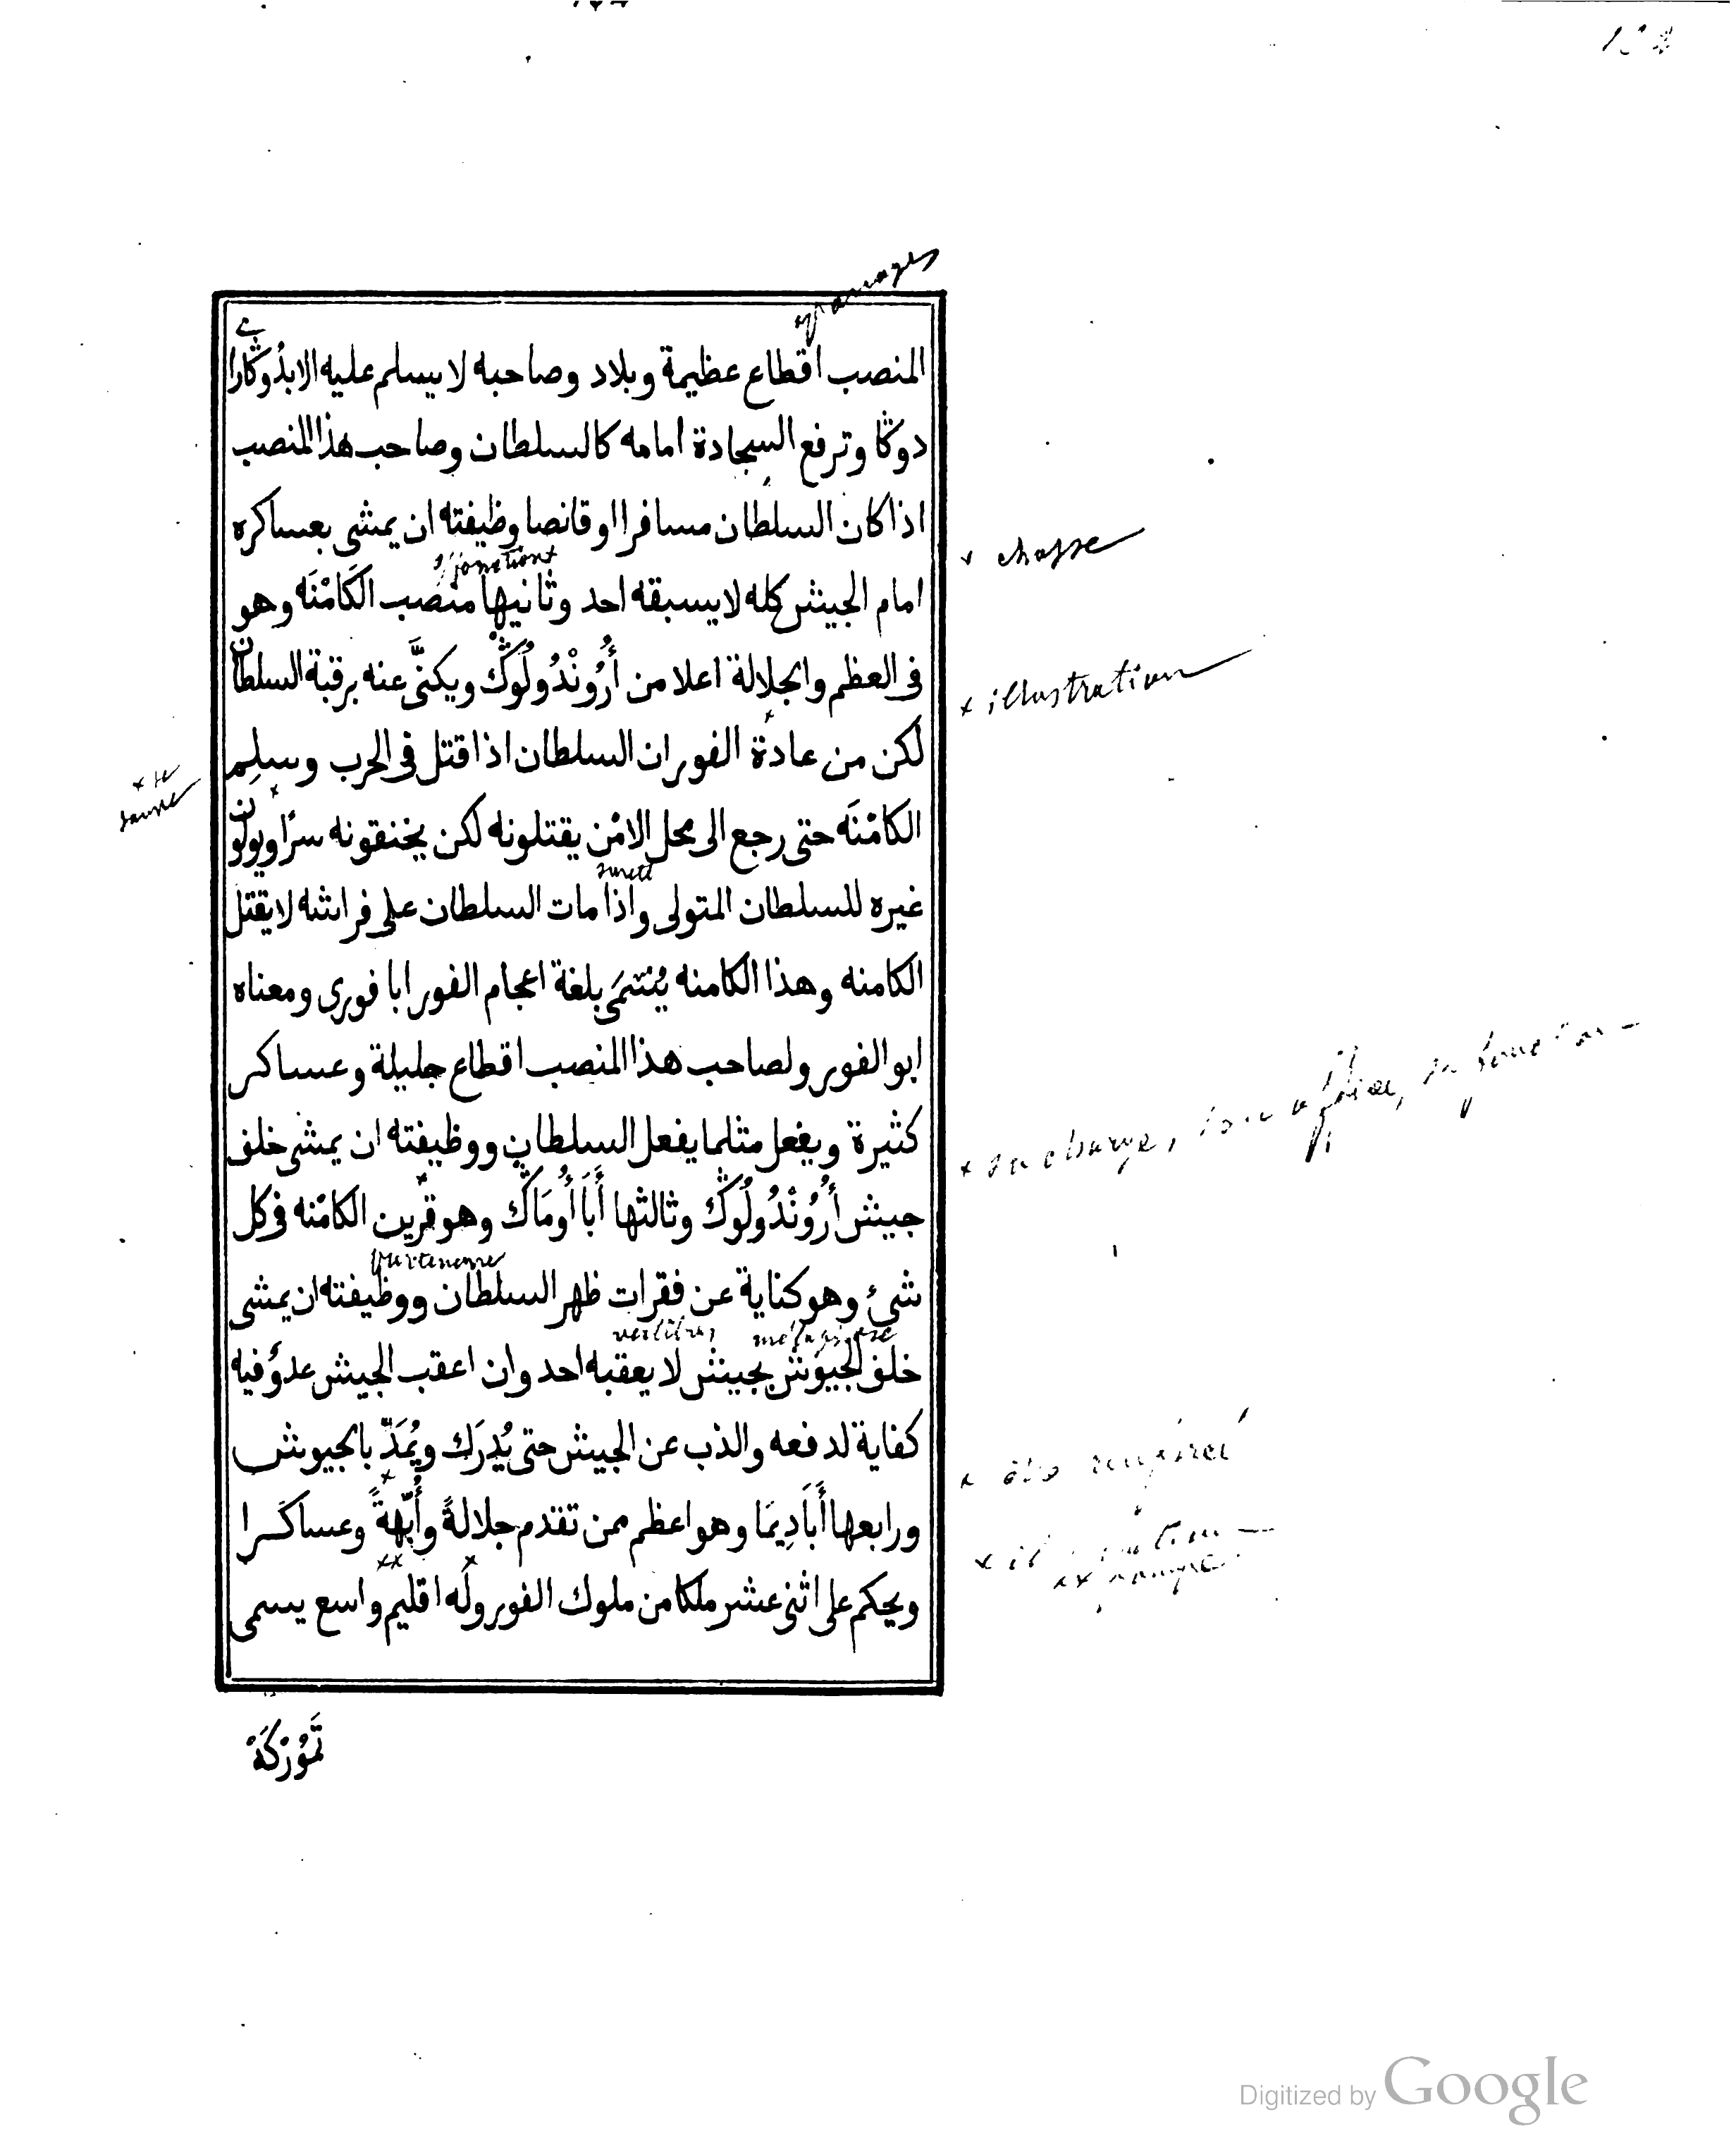 apanages
المنصب اقطاع عظيمة وبلاد وصاحبه لا يسلم عليه الا بدُوڭارايے
دوڭا وترفع السجادة امامه كالسلطان وصاحب هذا المنصب
اذا كان السلطان مسافرا او قانصا وظيفته ان يمشى بعساكره
x chasse
fonctions x
امام الجيش كله لا يسبقه احد وثانيها منصب الكَامْنَه وهو
فى العظم والجلالة اعلا من أُرُونْدُولُوڭْ ويكنَّى عنه برقبة السلطان
x illustration
لكن من عادة الفور ان السلطان اذا قتل فى الحرب وسلِم
x se sauve
الكامْنَه حتى رجع الى محل الامْن يقتلونه لكن يخنقونه سرًا ويولون
sureté
غيره للسلطان المتولى واذا مات السلطان على فراشه لا يقتل
الكامنه وهذا الكامنه يُسَمَى بلغة اعجام الفور ابا فورى ومعناه
ابو الفور ولصاحب هذا المنصب اقطاع جليلة وعساكر
كثيرة ويفعل مثلما يفعل السلطان ووظيفته ان يمشى خلف
x sa charge, son office, sa fonction
جيش أُرُونْدُولُوڭْ وثالثها أَبَا أُومَاڭْ وهو قرين الكامْنه فى كل
شئ وهو كناية عن فقرات ظهر السلطان ووظيفته ان يمشى
vertèbres
خلف الجيوش بجيش لا يعقبه احد وان اعقب الجيش عدوٌ فيه
كفاية لدفعه والذب عن الجيش حتى يُدرَك ويُمَدّ بالجيوش
ورابعها أَبَادِيمَا وهو اعظم ممن تقدم جلالةً وأُبَّهةً وعساكرا
ويحكم على اثنى عشر ملكا من ملوك الفور وله اقليم واسع يسمى
تَمُوْرْكَهْ
Digitized by Google